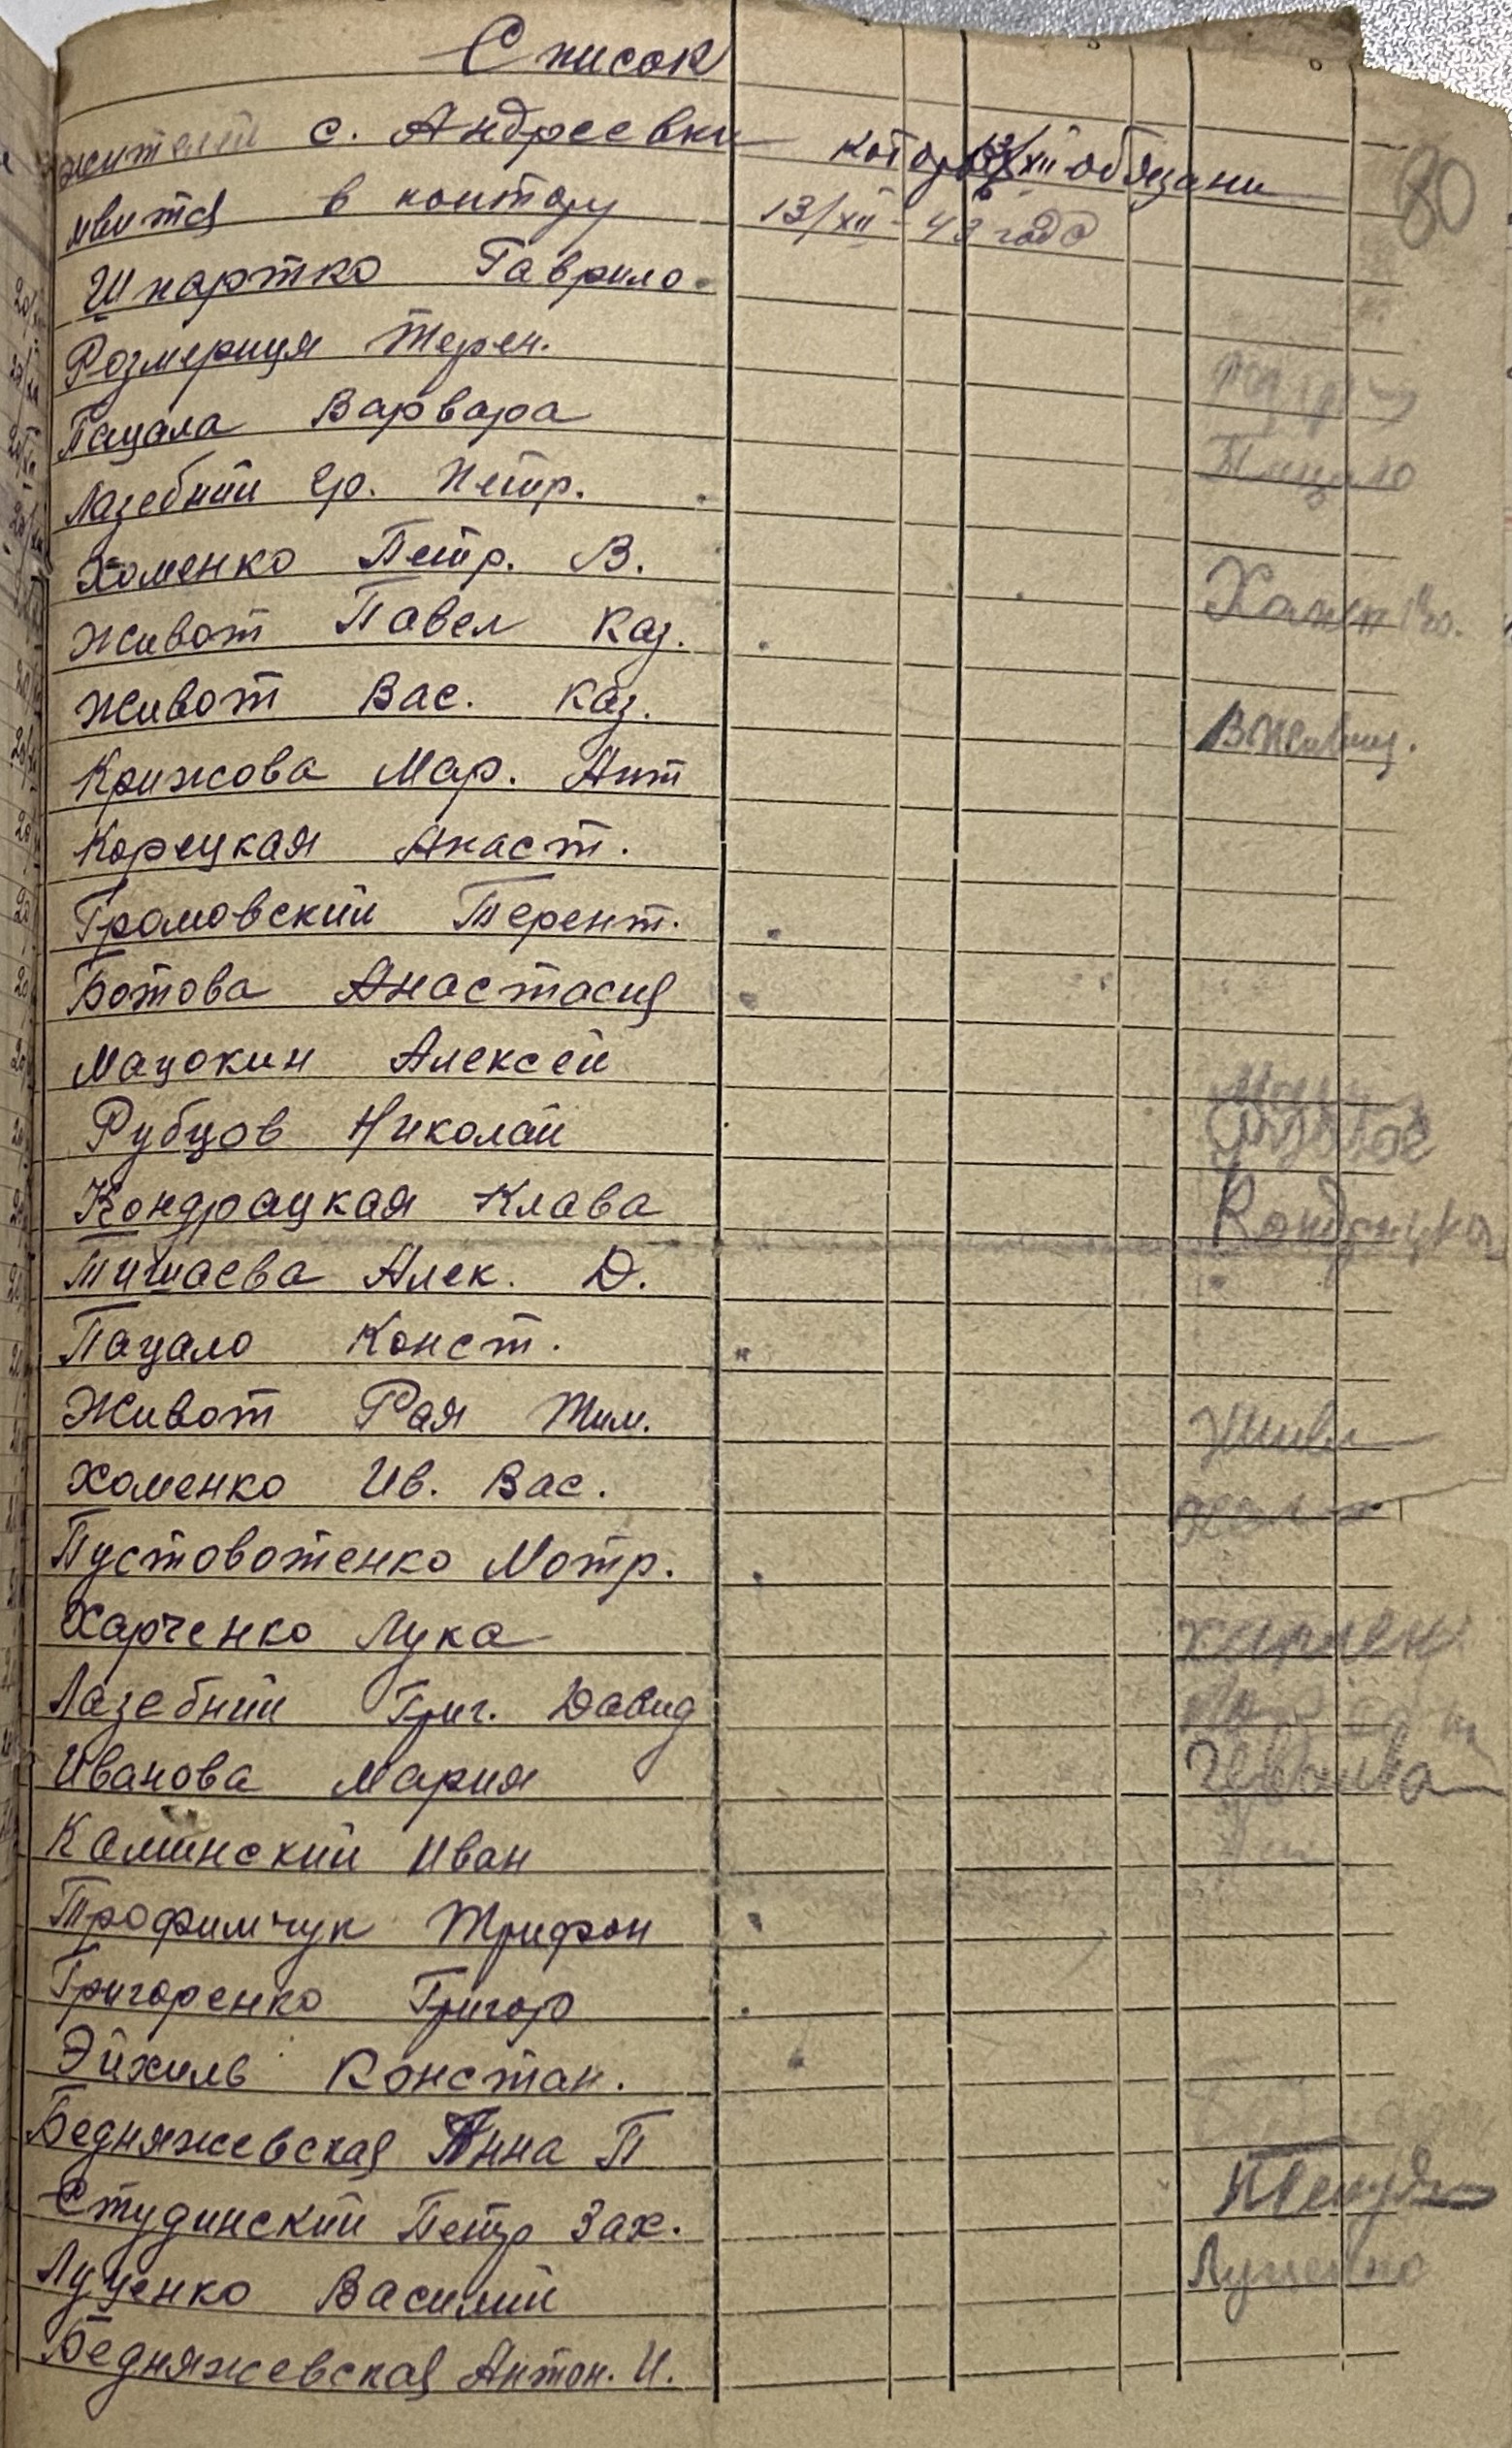 Список
жителей с. Андреевки которые обязани
явится в контору 13/XII - 43 года
80
Шпартко Гаврило
Розмериця Терен.
Пацала Варвара Пацало
Лазебний Гр. Петр.
Хоменко Петр. В. Хоменко.
Живот Павел Каз.
Живот Вас. Каз. В Живот.
Крижова Мар. Ант
Корецкая Анаст.
Громовский Терент.
Ботова Анастасия
Мацокин Алексей
Рубцов Николай
Кондрацкая Клава
Тишаева Алек. Д.
Пацало Конст.
Живот Рая Тим.
Хоменко Ив. Вас.
Пустовотенко Мотр.
Харченко Лука
Лазебний Григ. Давид
Иванова Мария
Каминский Иван
Трофимчук Трифон
Григоренко Григор
Эйхиль Констан.
Бедняжевская Анна П
Студинский Петр Зах.
Луценко Василий Луценко
Бедняжевская Антон. И.